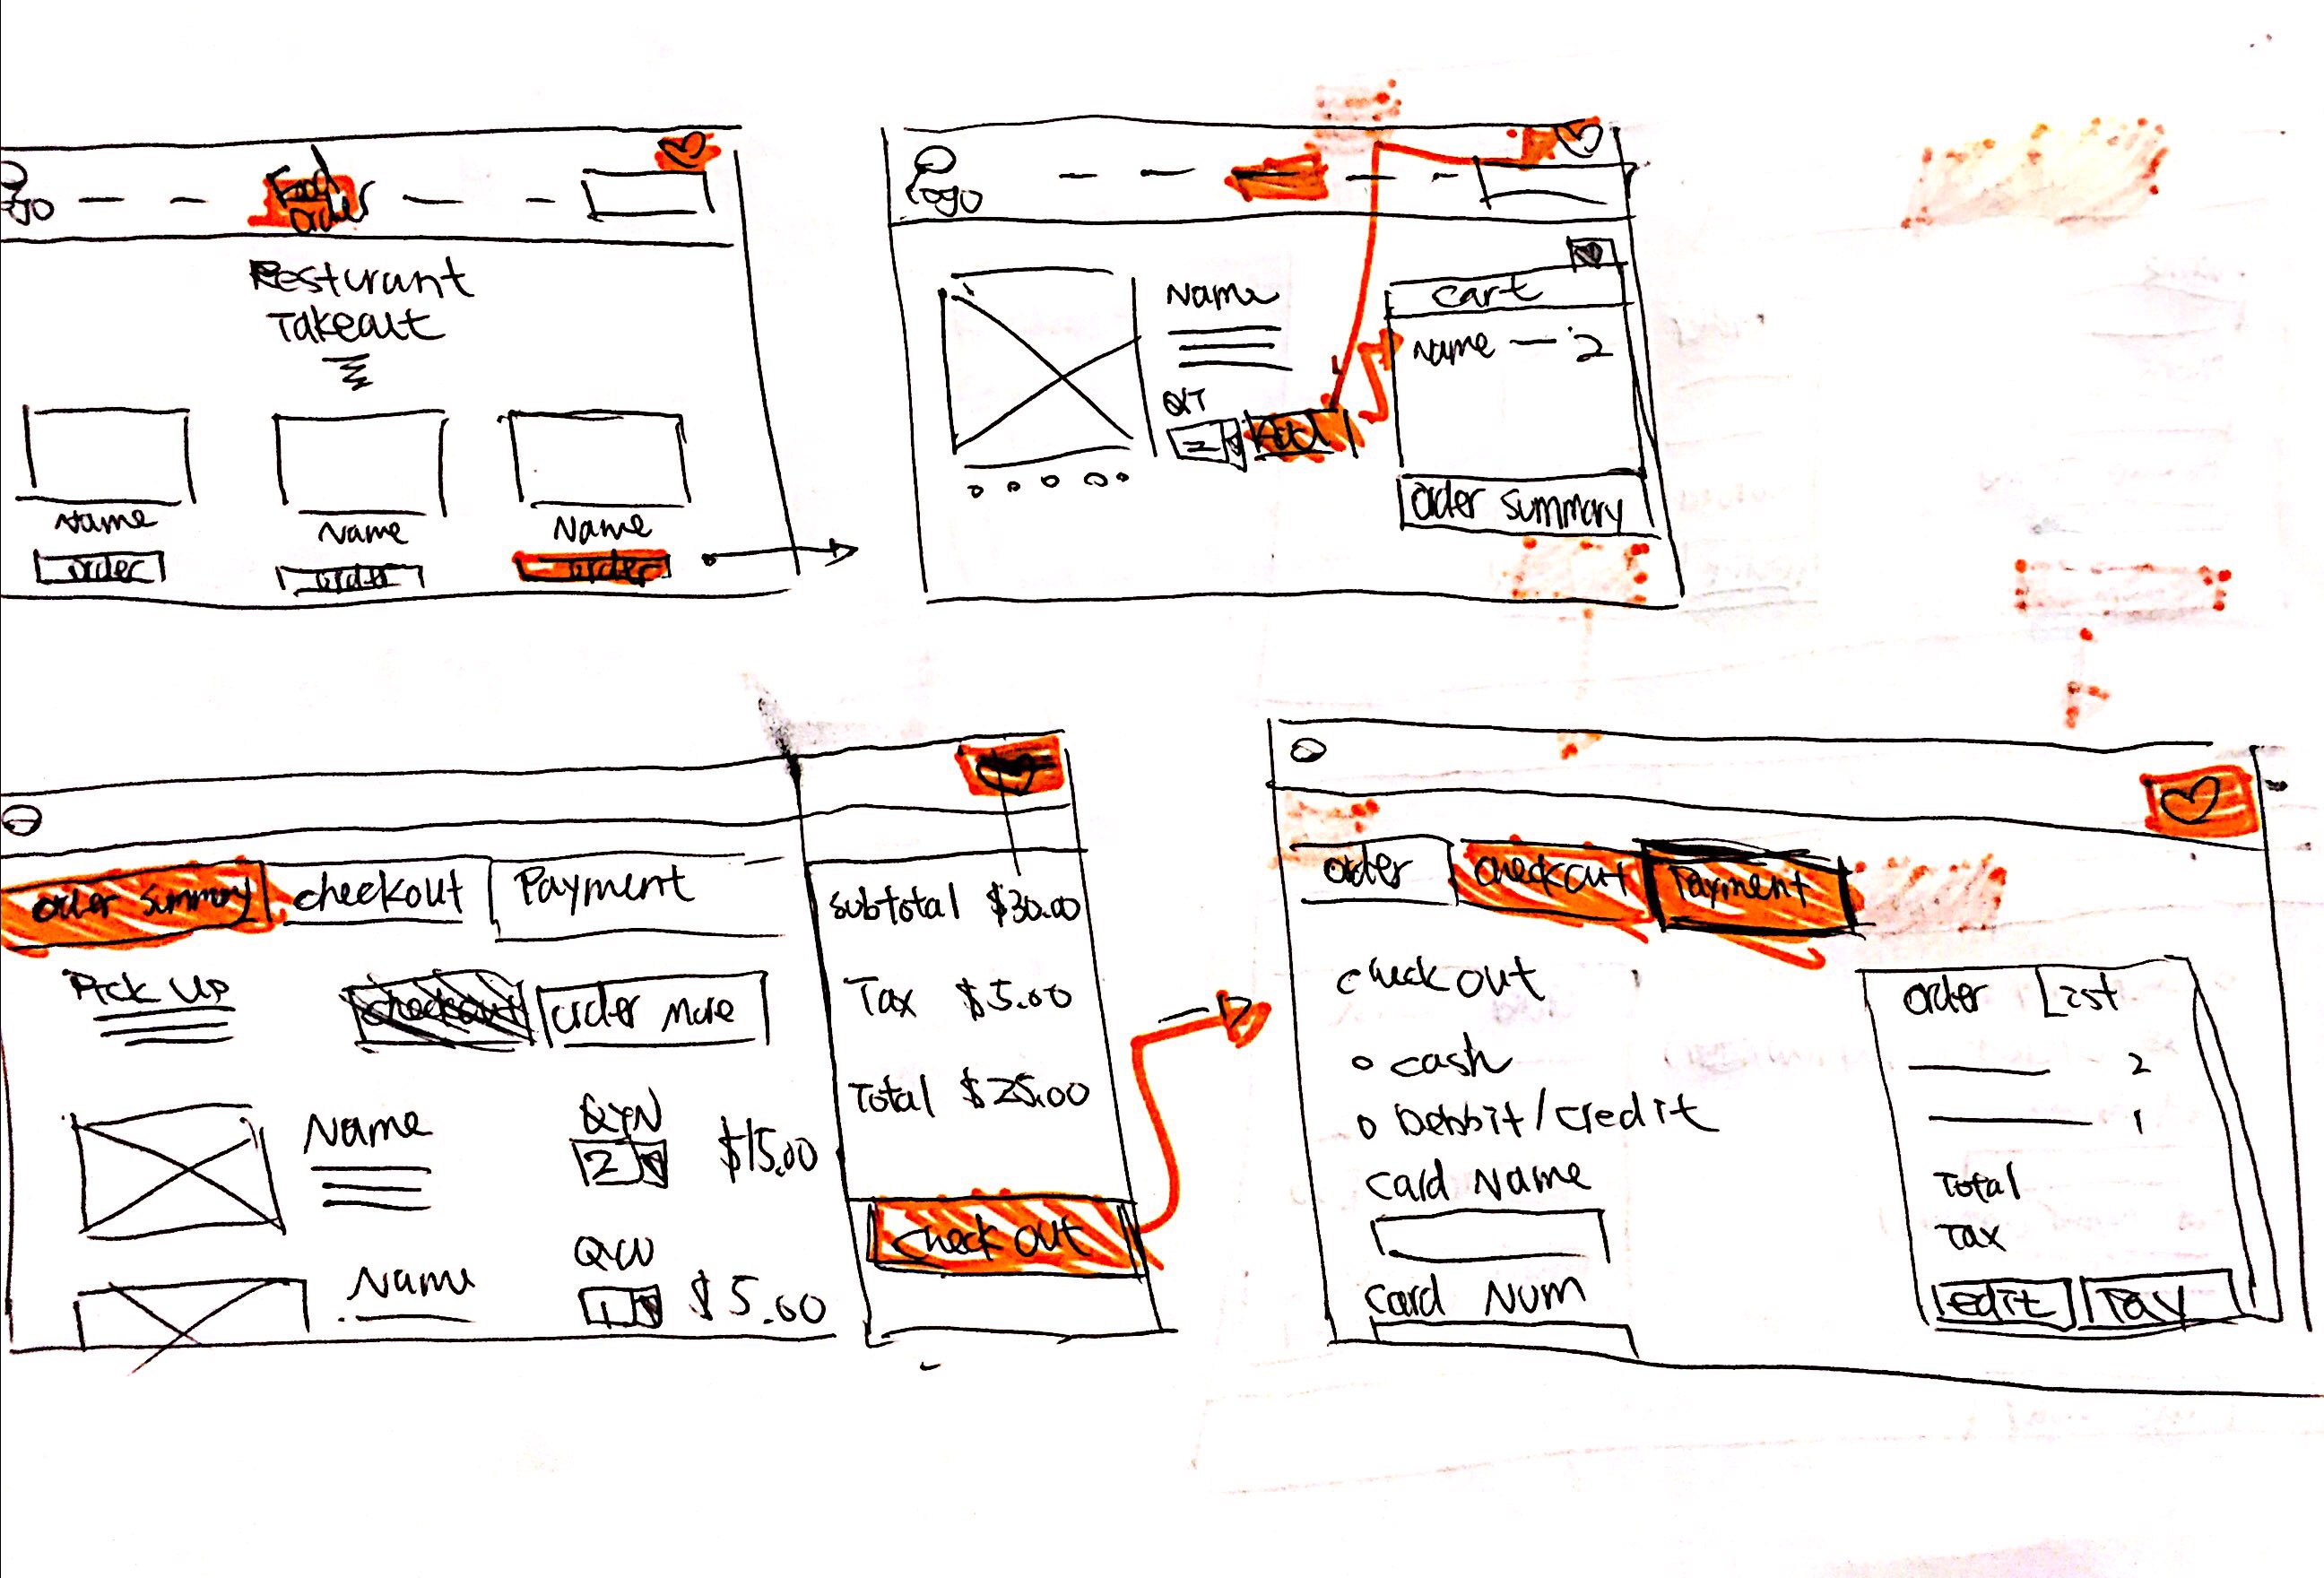 Food
order
Resturant
Takeout
Name
Name
Name
order
order
order
Logo
Name
QIT
2
Add
cart
Name — 2
order summary
order summary
checkout
Payment
Pick Up
checkout
order more
Name
QYN
2
$15.00
Name
1
$5.00
subtotal $30.00
Tax $5.00
Total $25.00
check out
order
checkout
Payment
check out
cash
Debbit/credit
Card Name
Card Num
order List
2
1
Total
Tax
edit
Pay